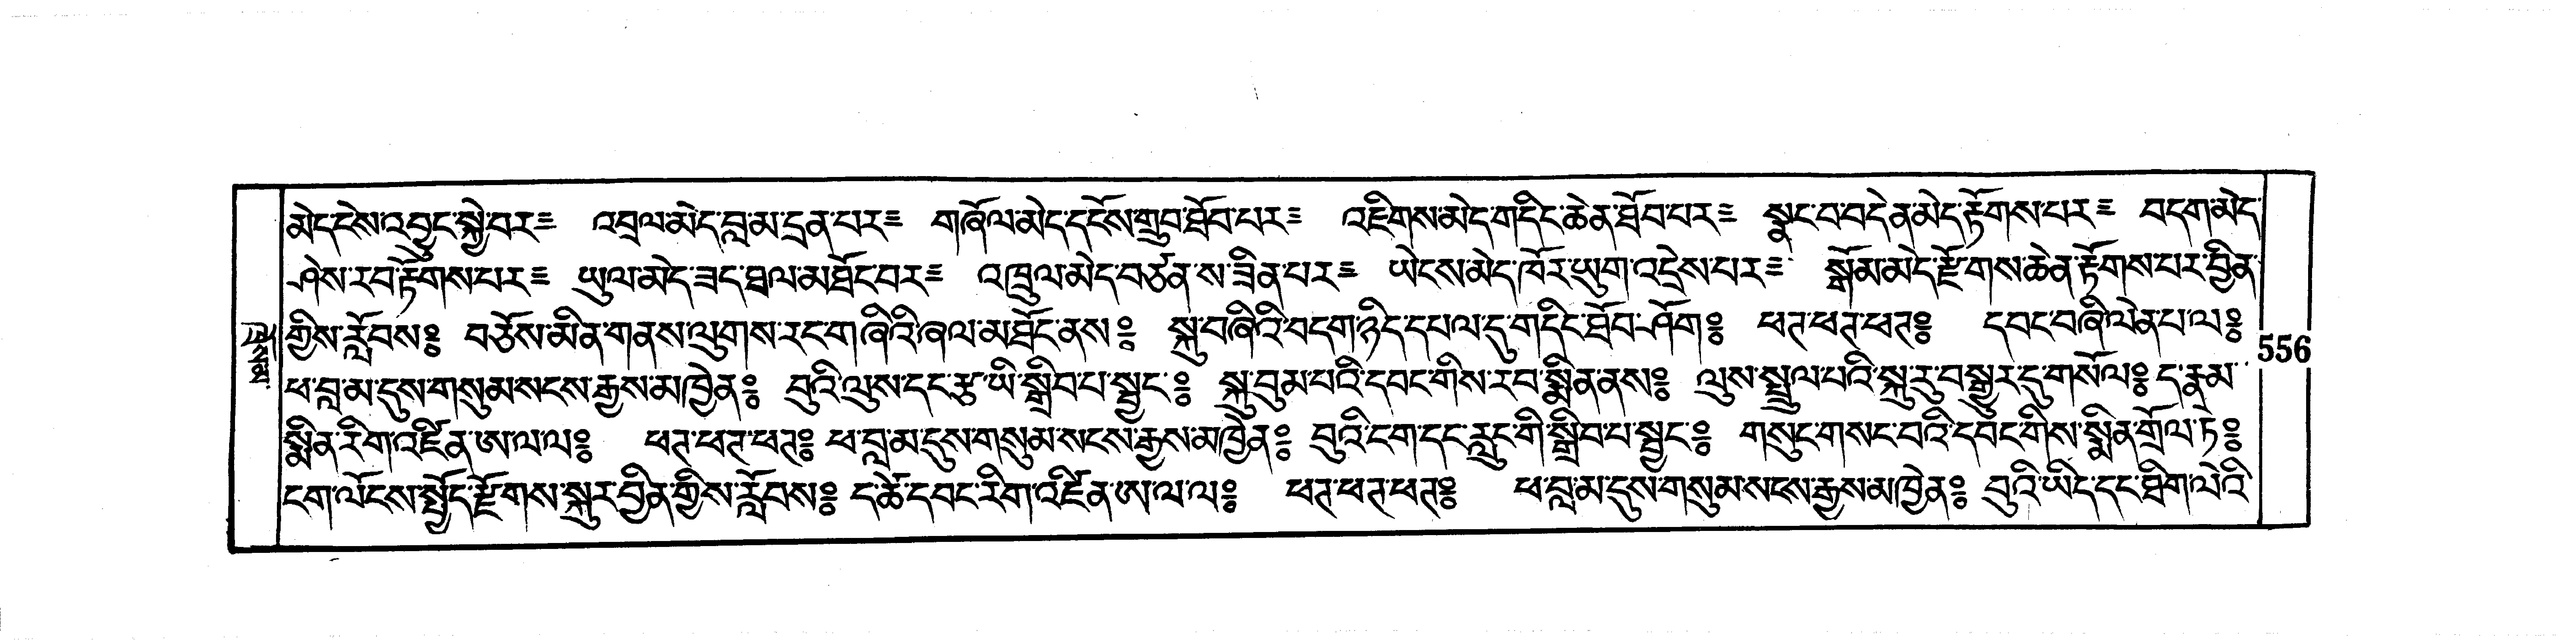 མེད་ངེས་འབྱུང་སྐྱེ་བར༔ འབྲལ་མེད་བླ་མ་དྲན་པར༔ གཞོལ་མེད་དངོས་གྲུབ་ཐོབ་པར༔ འཇིགས་མེད་གདིང་ཆེན་ཐོབ་པར༔ སྣང་བ་བདེན་མེད་རྟོགས་པར༔ བདག་མེད་
ཤེས་རབ་རྟོགས་པར༔ ཡུལ་མེད་ཟང་ཐལ་མཐོང་བར༔ འཁྲུལ་མེད་བཙན་ས་ཟིན་པར༔ ཡེངས་མེད་ཁོར་ཡུག་འདྲེས་པར༔ སྒོམ་མེད་རྫོགས་ཆེན་རྟོགས་པར་བྱིན་
གྱིས་རློབས༔ བཅོས་མིན་གནས་ལུགས་རང་གཞིའི་ཞལ་མཐོང་ནས༔ སྐུ་བཞིའི་བདག་ཉིད་དཔལ་དུ་གདིང་ཐོབ་ཤོག༔ ཕཊ་ཕཊ་ཕཊ༔ དབང་བཞི་ལེན་པ་ལ༔
556
ཕ་བླ་མ་དུས་གསུམ་སངས་རྒྱས་མཁྱེན༔ བུའི་ལུས་དང་རྩ་ཡི་སྒྲིབ་པ་སྦྱང་༔ སྐུ་བུམ་པའི་དབང་གིས་རབ་སྨིན་ནས༔ ལུས་སྤྲུལ་པའི་སྐུ་རུ་བསྒྱུར་དུ་གསོལ༔ ད་རྣམ་
སྨིན་རིག་འཛིན་ཨ་ལ་ལ༔ ཕཊ་ཕཊ་ཕཊ༔ ཕ་བླ་མ་དུས་གསུམ་སངས་རྒྱས་མཁྱེན༔ བུའི་ངག་དང་རླུང་གི་སྒྲིབ་པ་སྦྱང་༔ གསུང་གསང་བའི་དབང་གིས་སྨིན་གྲོལ་ཏེ༔
ངག་ལོངས་སྤྱོད་རྫོགས་སྐུར་བྱིན་གྱིས་རློབས༔ ད་ཚེ་དབང་རིག་འཛིན་ཨ་ལ་ལ༔ ཕཊ་ཕཊ་ཕཊ༔ ཕ་བླ་མ་དུས་གསུམ་སངས་རྒྱས་མཁྱེན༔ བུའི་ཡིད་དང་ཐིག་ལེའི